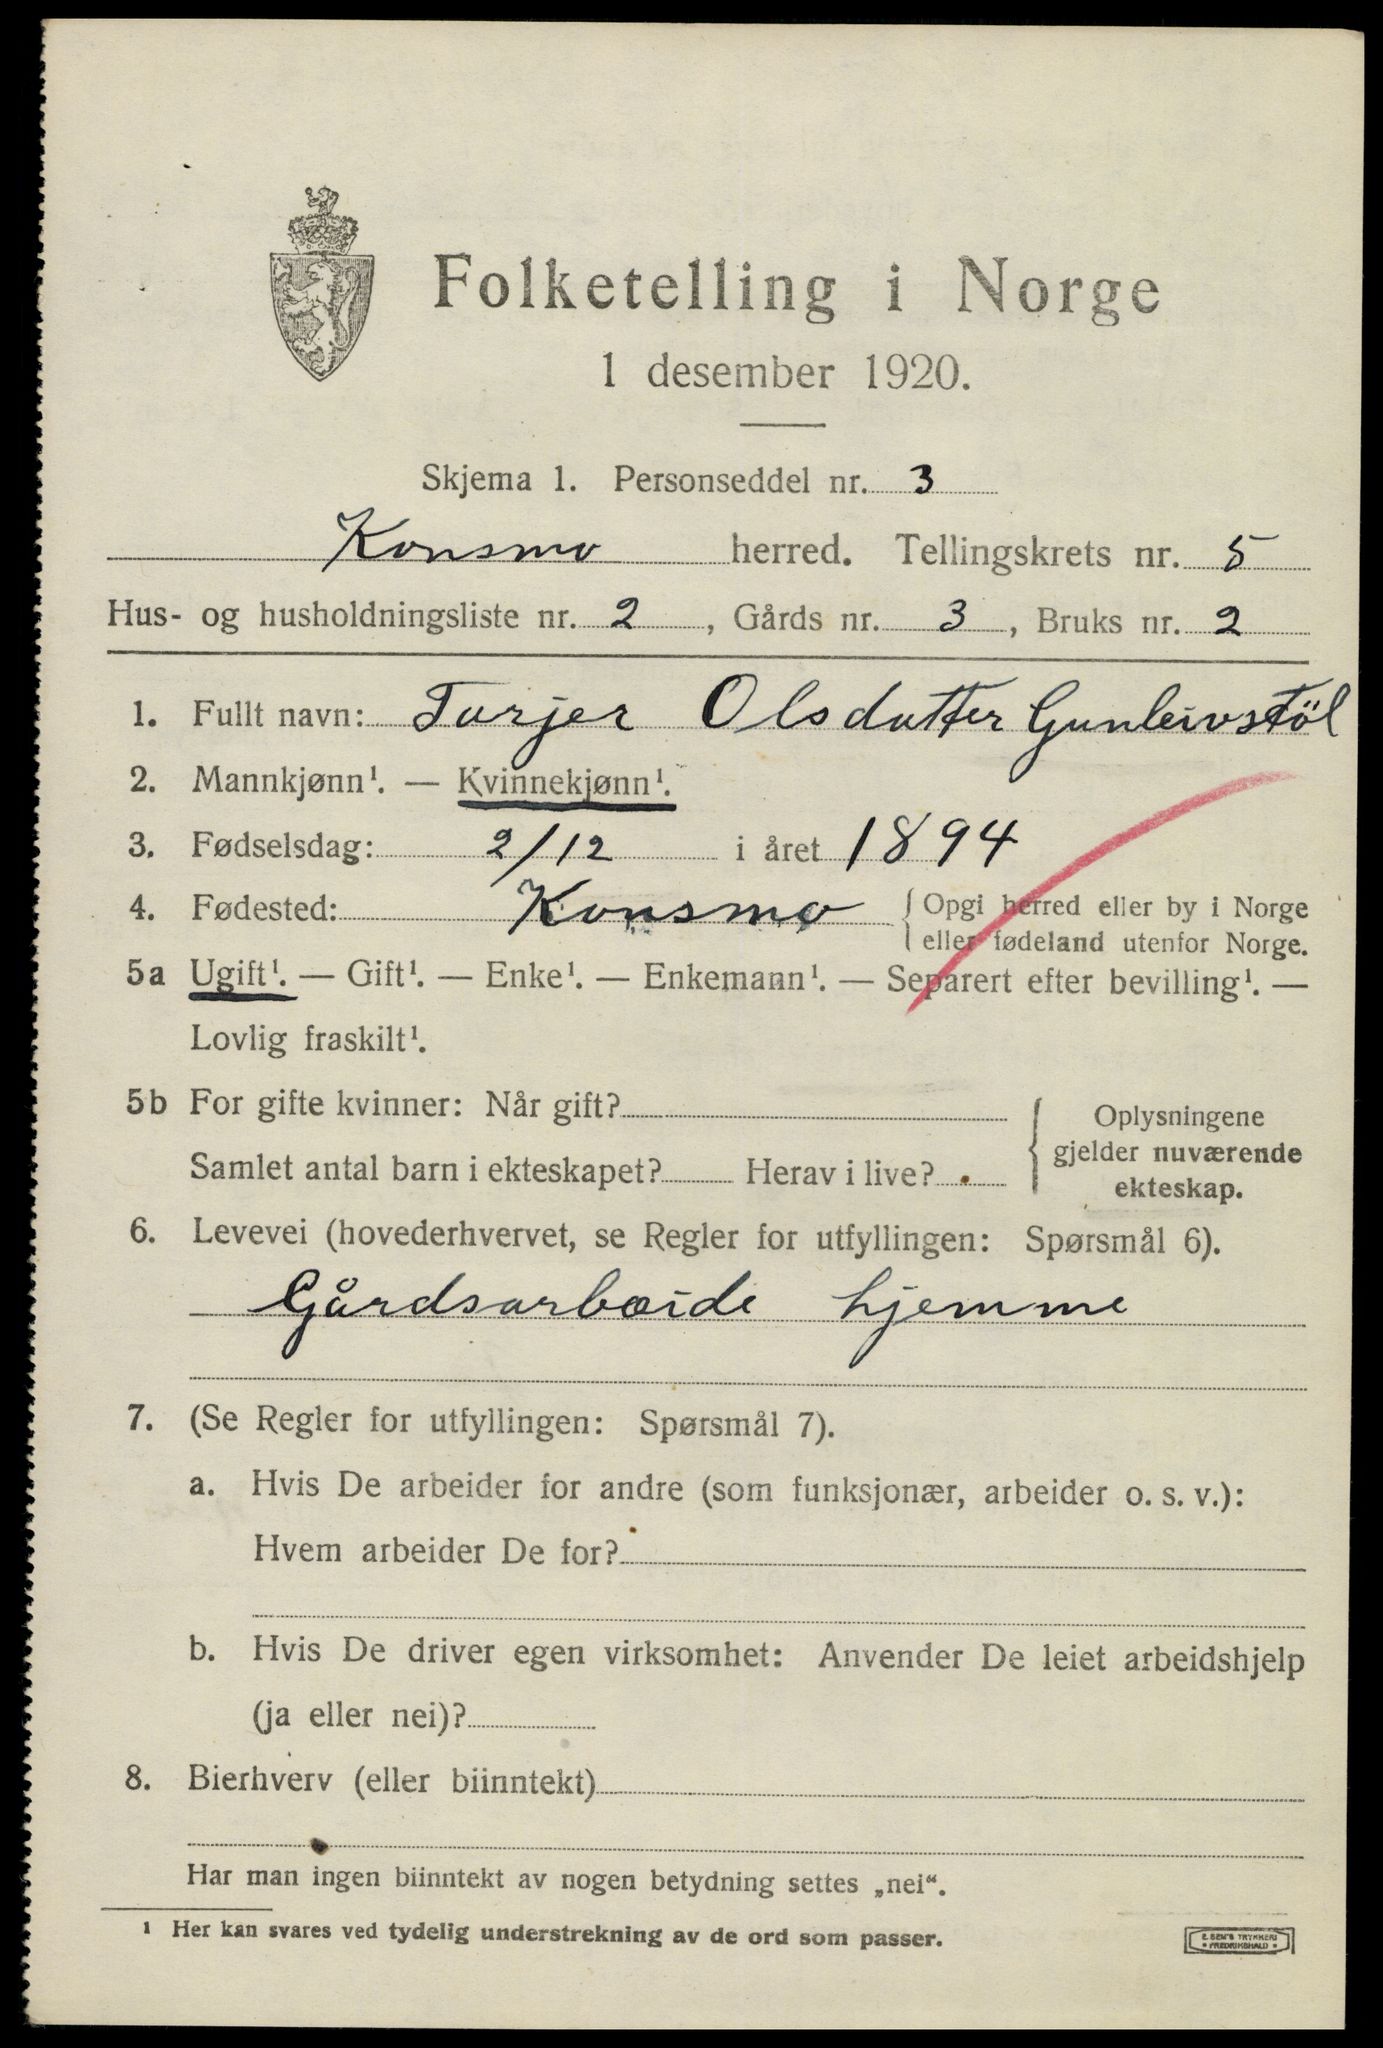 Folketelling i Norge
1 desember 1920.
Skjema 1. Personseddel nr. 3
Konsmo herred. Tellingskrets nr. 5
Hus- og husholdningsliste nr. 2, Gårds nr. 3, Bruks nr. 2
1. Fullt navn: Torjer Olsdatter Gunleivstöl
2. Mannkjønn¹. — Kvinnekjønn¹.
3. Fødselsdag: 2/12 i året 1894
4. Fødested: Konsmo { Opgi herred eller by i Norge
eller fødeland utenfor Norge.
5a Ugift¹. — Gift¹. — Enke¹. — Enkemann¹. — Separert efter bevilling¹. —
Lovlig fraskilt¹.
5b For gifte kvinner: Når gift? Oplysningene
gjelder nuværende
Samlet antal barn i ekteskapet? Herav i live?
ekteskap.
6. Levevei (hovederhvervet, se Regler for utfyllingen: Spørsmål 6).
Gårdsarbeide hjemme
7. (Se Regler for utfyllingen: Spørsmål 7).
a. Hvis De arbeider for andre (som funksjonær, arbeider o. s. v.):
Hvem arbeider De for?
b. Hvis De driver egen virksomhet: Anvender De leiet arbeidshjelp
(ja eller nei)?
8. Bierhverv (eller biinntekt)
Har man ingen biinntekt av nogen betydning settes „nei“.
¹ Her kan svares ved tydelig understrekning av de ord som passer.
E. SEM'S TRYKKERI
• FREDRIKSHALD •